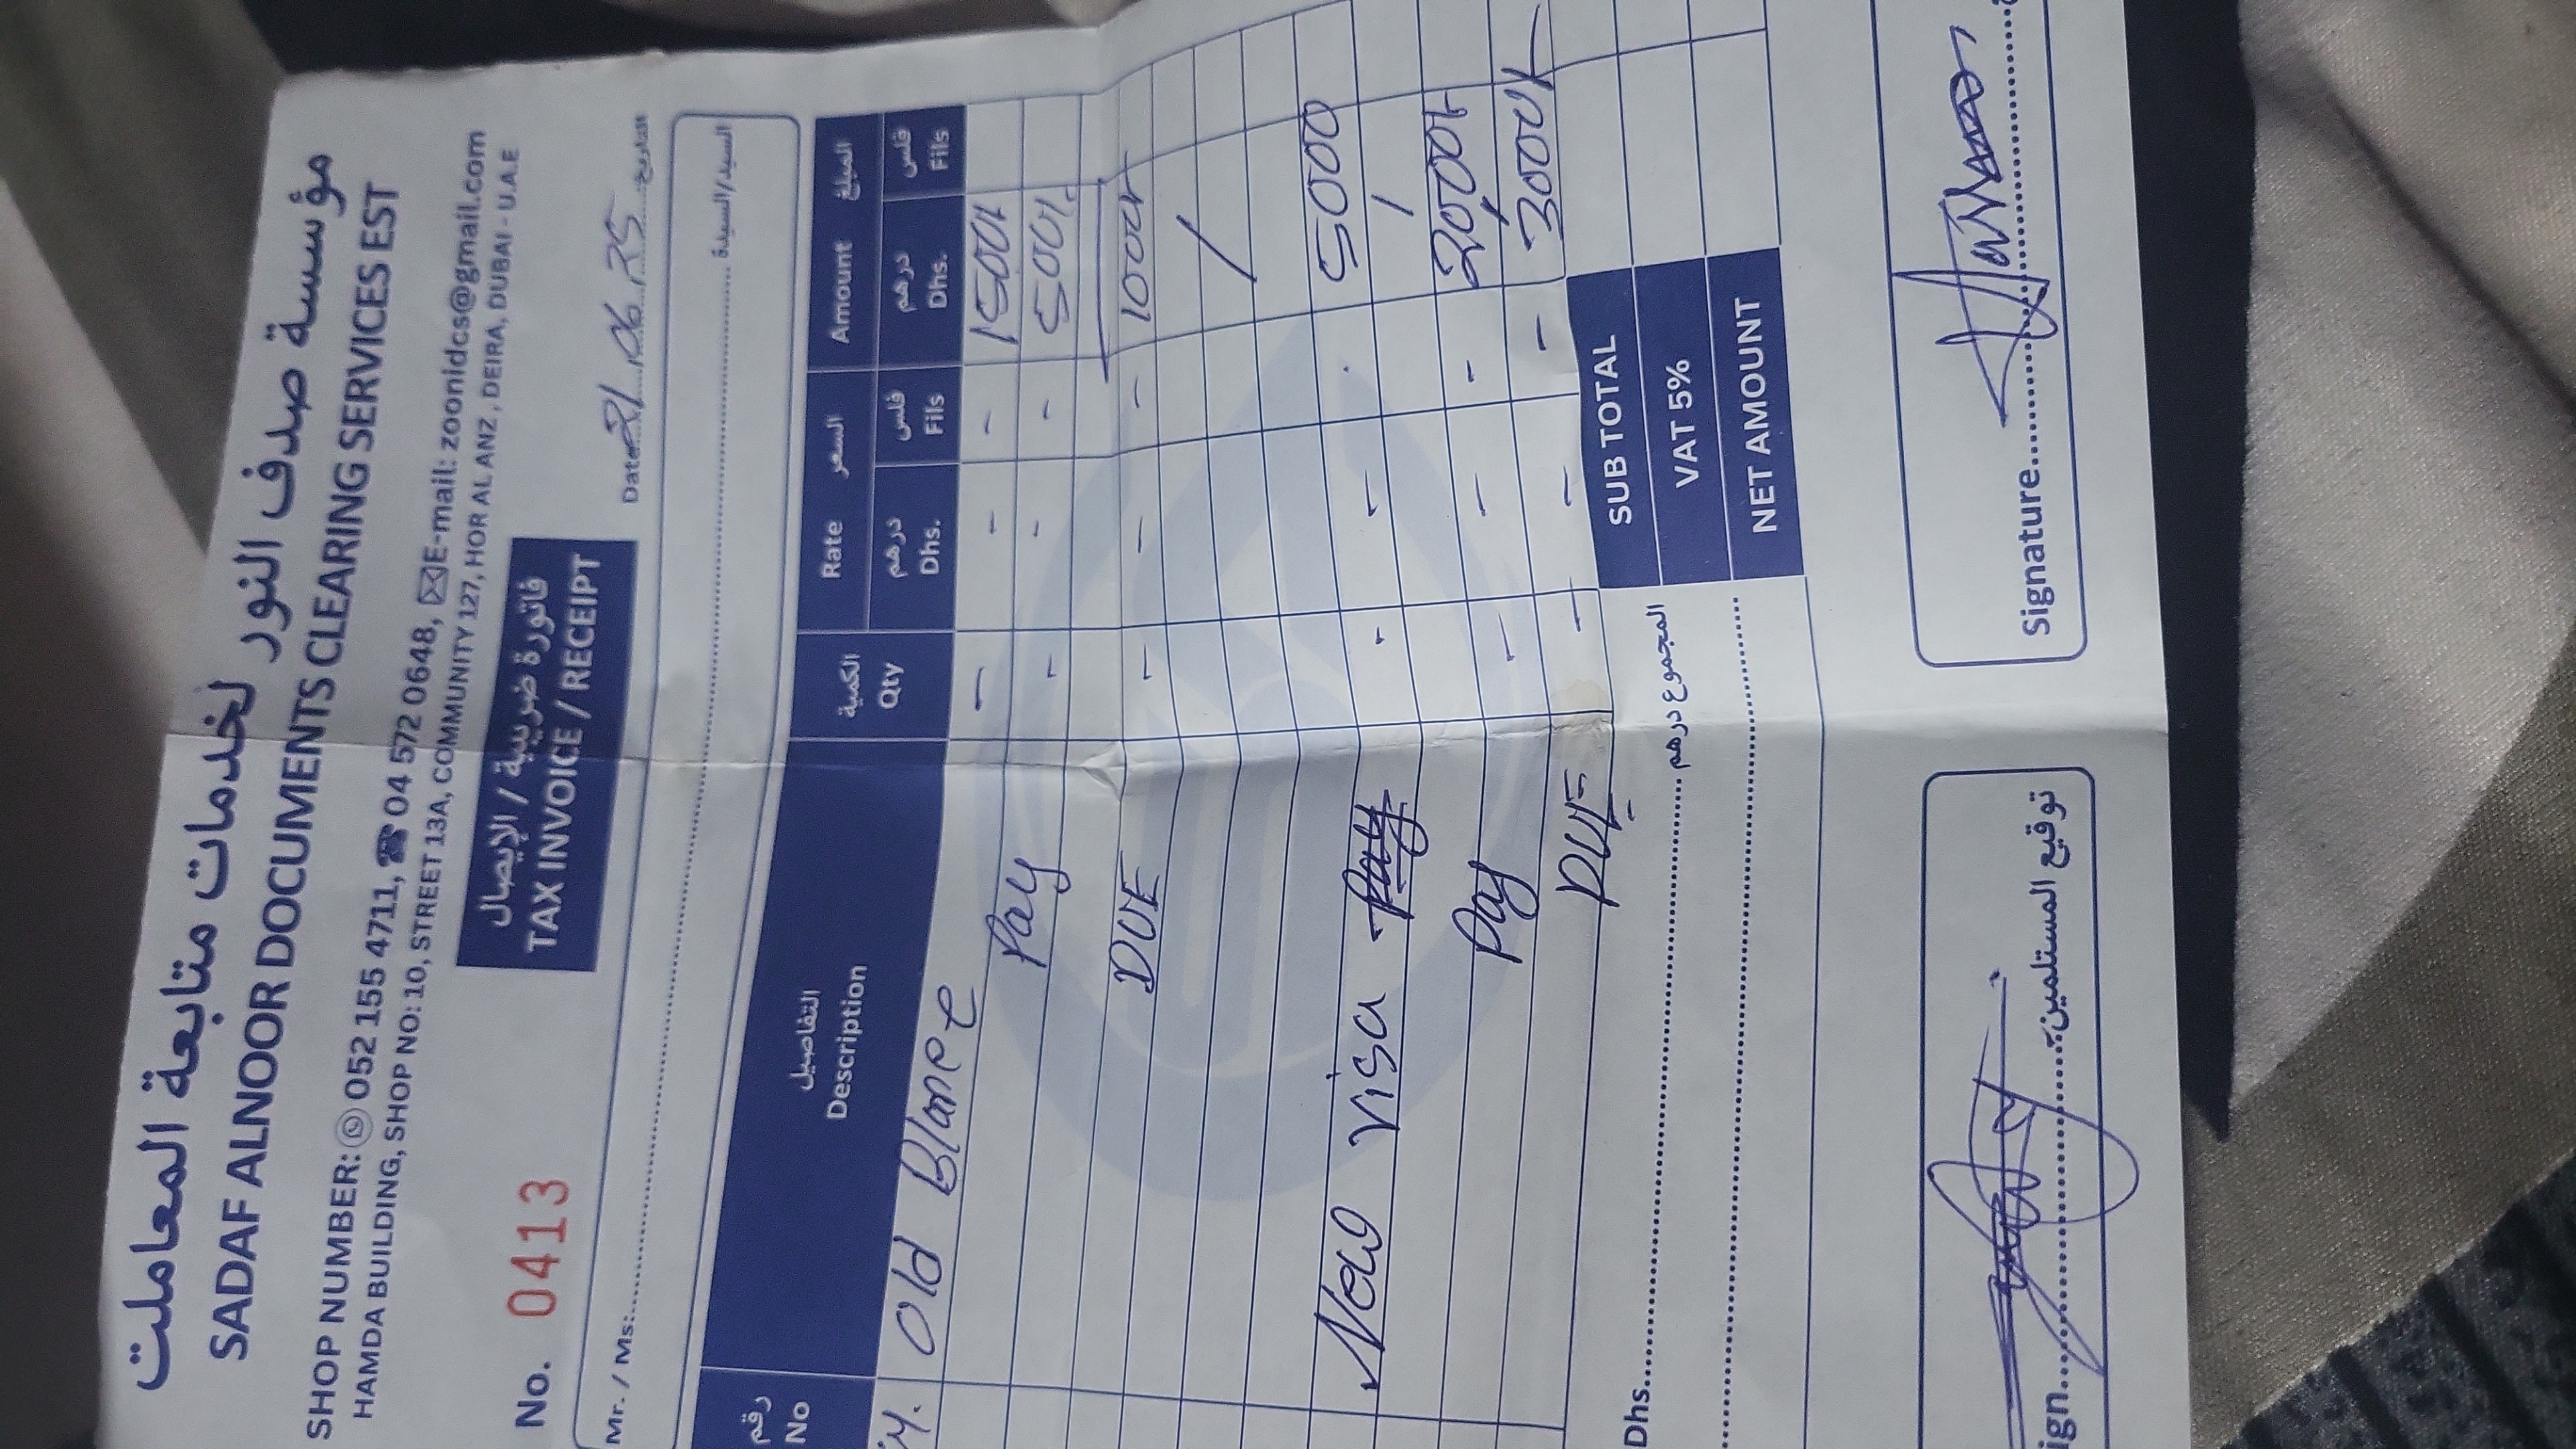 مؤسسة صدف النور لخدمات متابعة المعاملات
SADAF ALNOOR DOCUMENTS CLEARING SERVICES EST
SHOP NUMBER: 052 155 4711, ☎ 04 572 0648, ✉E-mail: zoonidcs@gmail.com
HAMDA BUILDING, SHOP NO: 10, STREET 13A, COMMUNITY 127, HOR AL ANZ, DEIRA, DUBAI - U.A.E
فاتورة ضريبية / الإيصال
TAX INVOICE / RECEIPT
No. 0413
Date 21.06.25 التاريخ
Mr. / Ms: السيد/السيدة
رقم التفاصيل الكمية السعر Rate المبلغ Amount
No Description Qty درهم Dhs. فلس Fils درهم Dhs. فلس Fils
Old Blance - - - 1500/-
Pay - - - 500/-
DUE - - - 1000/-
New visa - - 5000
Pay - - - 2000/-
DUE - - - 3000/-
Dhs. المجموع درهم
SUB TOTAL
VAT 5%
NET AMOUNT
ign. توقيع المستلمين
Signature